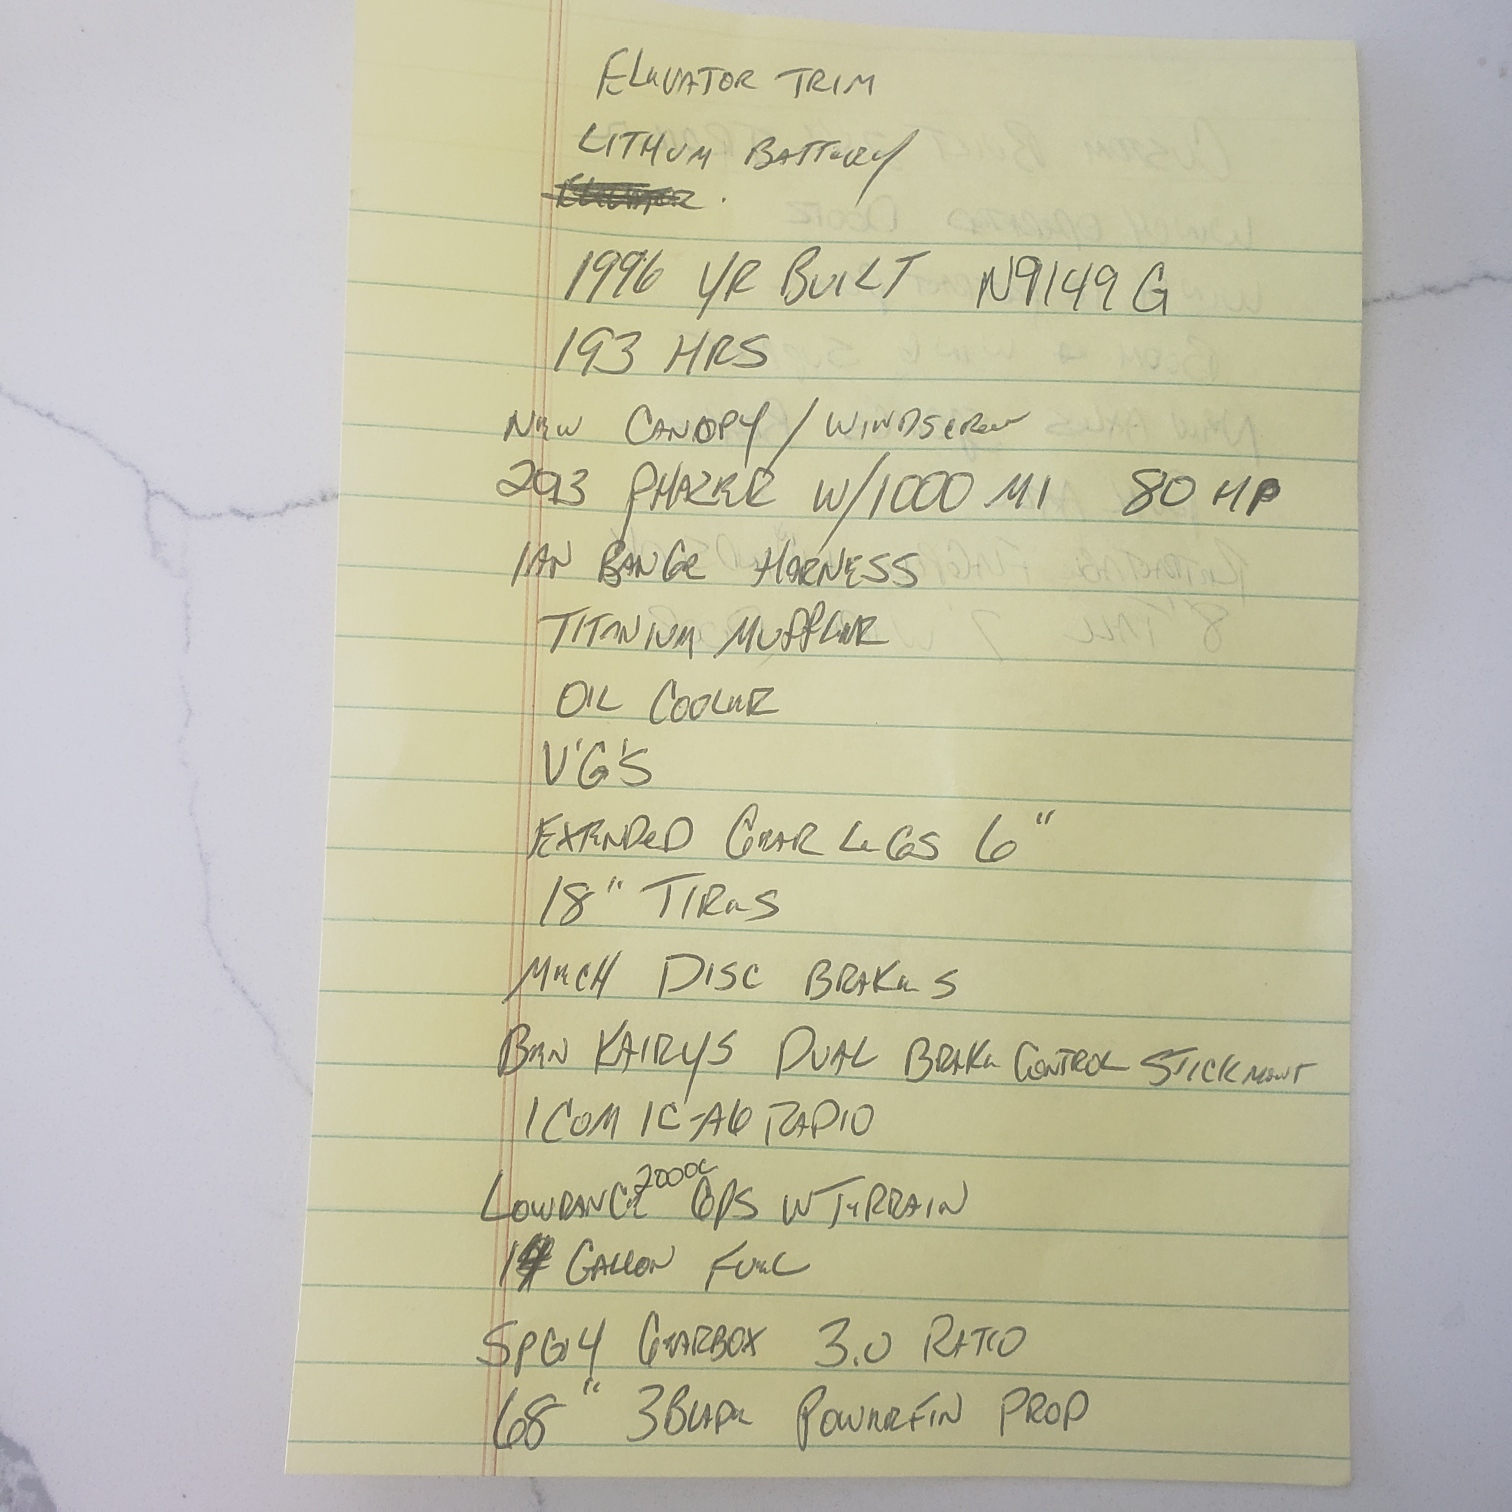 ELEVATOR TRIM
LITHUM BATTERY
ELEVATOR .
1996 YR BUILT N9149G
193 HRS
NEW CANOPY / WINDSCREEN
2013 PHAZER W/1000 MI 80 HP
IAN BANGE HARNESS
TITANIUM MUFFLER
OIL COOLER
V'G'S
EXTENDED GEAR LEGS 6"
18" TIRES
MECH DISC BRAKES
BEN KAIRYS DUAL BRAKE CONTROL STICK MOUNT
ICOM IC-A6 RADIO
LOWRANCE 2000C GPS W TERRAIN
GALLON FUEL
SPG4 GEARBOX 3.0 RATIO
68" 3 BLADE POWERFIN PROP